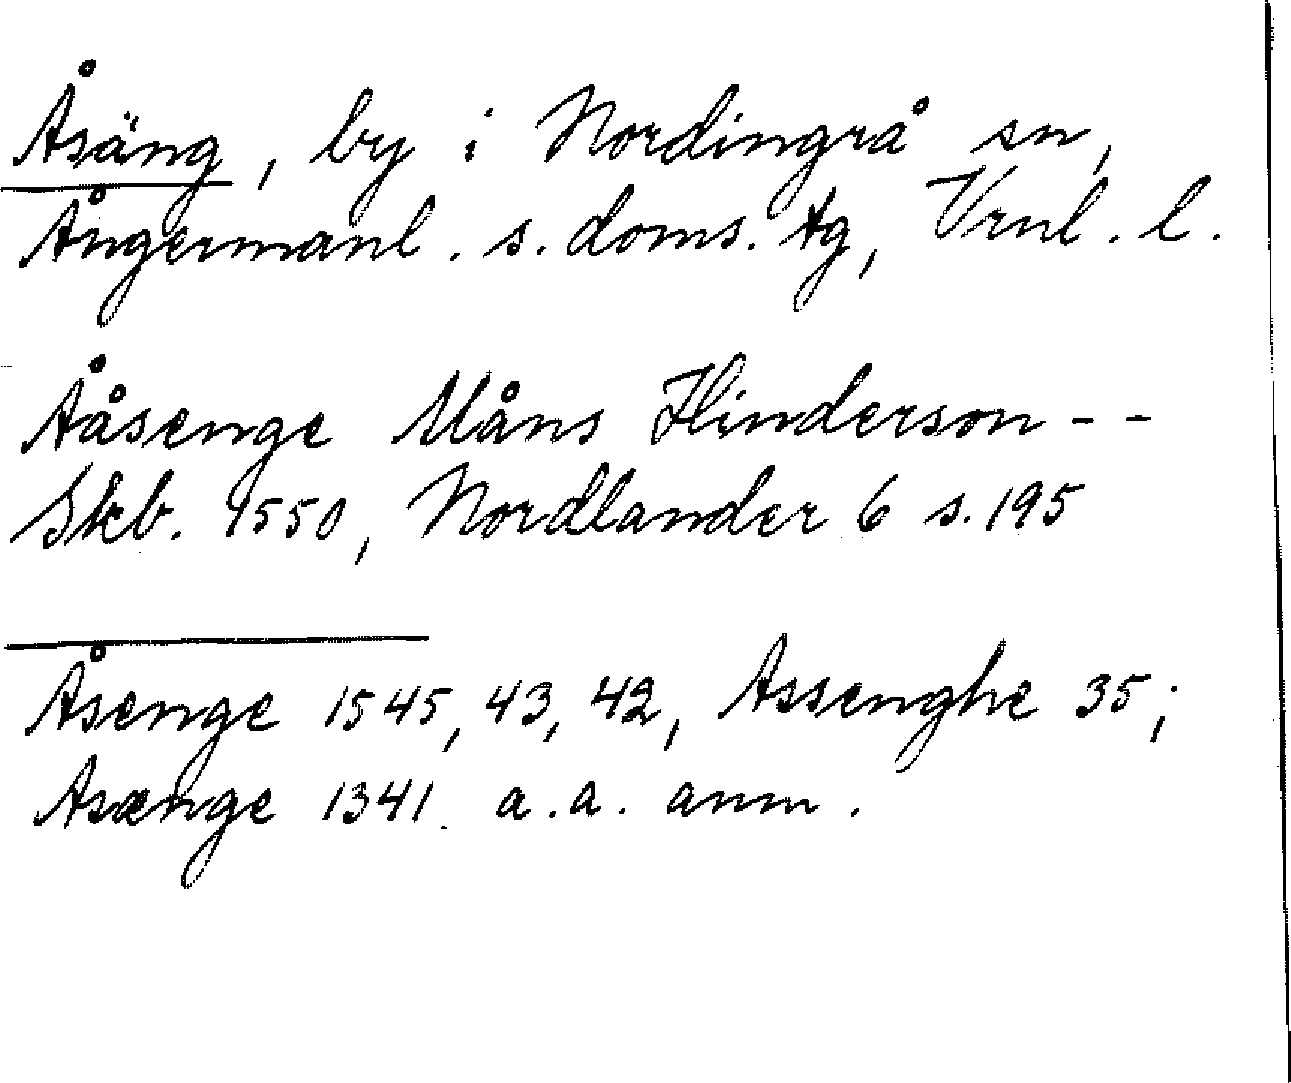 Åsäng, by i Nordingrå sn,
Ångermanl. s. doms. tg, Vrnl. l.
Ååsenge Måns Hinderson - -
Skb. 1550, Nordlander 6 s. 195
Åsenge 1545, 43, 42, Assenghe 35;
Asænge 1341. a.a. anm.